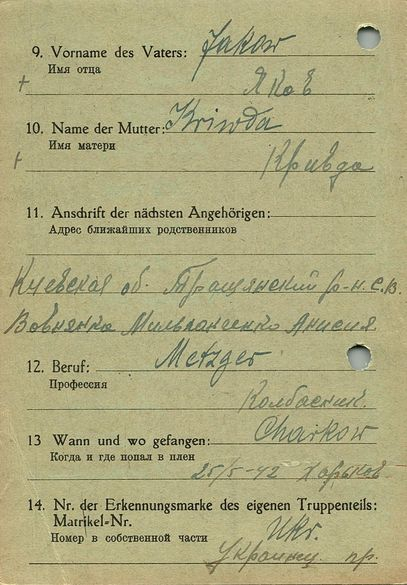 9. Vorname des Vaters: Jakow
Имя отца
+ Яков
10. Name der Mutter: Kriwda
Имя матери
+ Кривда
11. Anschrift der nächsten Angehörigen:
Адрес ближайших родственников
Киевская об. Тращянский р-н. с.в.
Вовнянка Анисия
12. Beruf: Metzger
Профессия
Колбасник.
13 Wann und wo gefangen: Charkow
Когда и где попал в плен
25/5-42 Харьков
14. Nr. der Erkennungsmarke des eigenen Truppenteils:
Matrikel-Nr.
Ukr.
Номер в собственной части
Украинц пр.